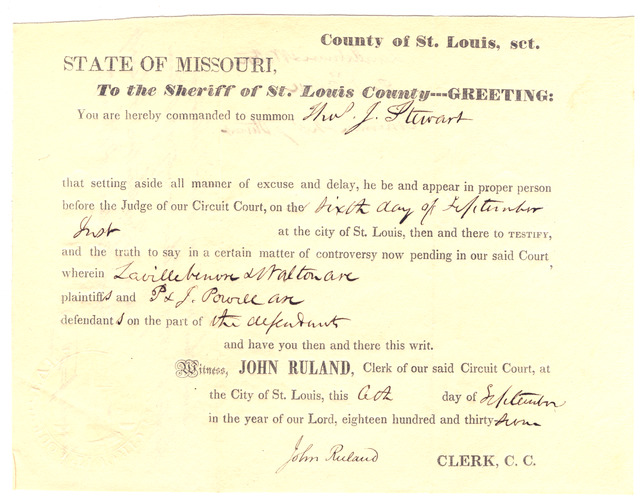 County of St. Louis, sct.
STATE OF MISSOURI,
To the Sheriff of St. Louis County---GREETING:
You are hereby commanded to summon Thos. J. Stewart
that setting aside all manner of excuse and delay, he be and appear in proper person
before the Judge of our Circuit Court, on the sixth day of September
Inst at the city of St. Louis, then and there to TESTIFY,
and the truth to say in a certain matter of controversy now pending in our said Court
wherein & Walton are
plaintiffs and P & J. Powell are
defendants on the part of the defendants
and have you then and there this writ.
Witness, JOHN RULAND, Clerk of our said Circuit Court, at
the City of St. Louis, this 6th day of September
in the year of our Lord, eighteen hundred and thirty
John Ruland CLERK, C. C.